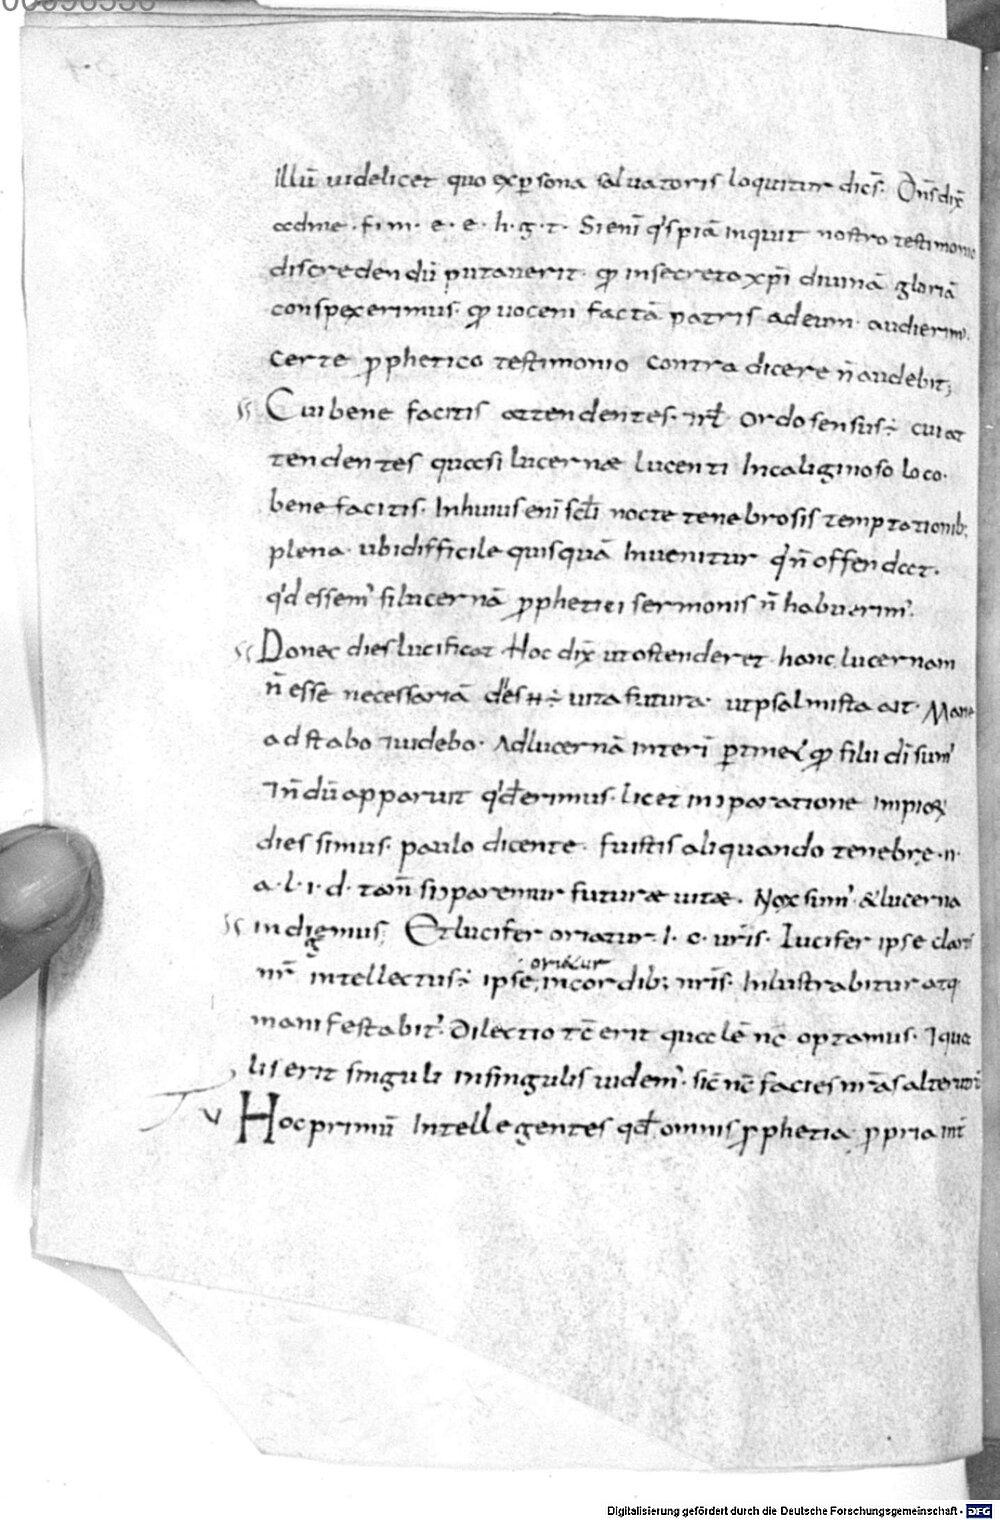 00096536
illū uidelicet quo ex ꝑsona saluatoris loquitur dicēs. Dn̄s dix̄
ad me. f. i. m. e. e. h. g. t. Si eni qͥspiā inquit nostro testimonio
discredendū putauerit. qꝫ in secreto xp̄i diuinā gloriā
conspexerimus. qꝫ uocem factā patris ad eum. audierimꝰ.
Certe ꝓphetico testimonio contra dicere n̄ audebit;
Cui bene facitis attendentes. rl̄. Ordo sensus ÷ cui at
tendentes quasi lucernæ lucenti In caliginoso loco.
bene facitis. In huius eni sc̄li nocte tenebrosis temptationibꝫ
plena. ubi difficile quisquā Inuenitur qͥ n̄ offendat.
qͥd essemꝰ si lucernā ꝓphetici sermonis n̄ habuerimꝰ.
Donec dies lucificat Hoc dix̄ ut ostenderet. hanc lucernam
n̄ esse necessariā ÷ uita futura. ut psalmista ait. Mane
adstabo ⁊ uidebo. Ad lucernā interī ꝑtinet qꝫ filii dī sumꝰ
⁊ n̄ dū apparuit qͥd erimus. licet in paratione impioꝝ
dies simus. paulo dicente. fuistis aliquando tenebrę. n.
a. l. i. d. tam̄ si paremur futuræ uitæ. Nox sumꝰ. & lucerna
indigemus; Et lucifer oriatur. I. c. ur̄is. Lucifer ipse clari
nr̄ intellectus ÷ ipse, in cordibꝫ nr̄is. Inlustrabitur atqꝫ
oriatur
manifestabitꝰ. Dilectio tc̄ erit quale nc̄ optamus. ⁊ qua
lis erit singuli in singulis uidemꝰ. sic̄ nc̄ facies nr̄as alterutrū
Hoc primū Intellegentes qd̄ omnis ꝓphetia ꝓpria int̄
Digitalisierung gefördert durch die Deutsche Forschungsgemeinschaft - DFG